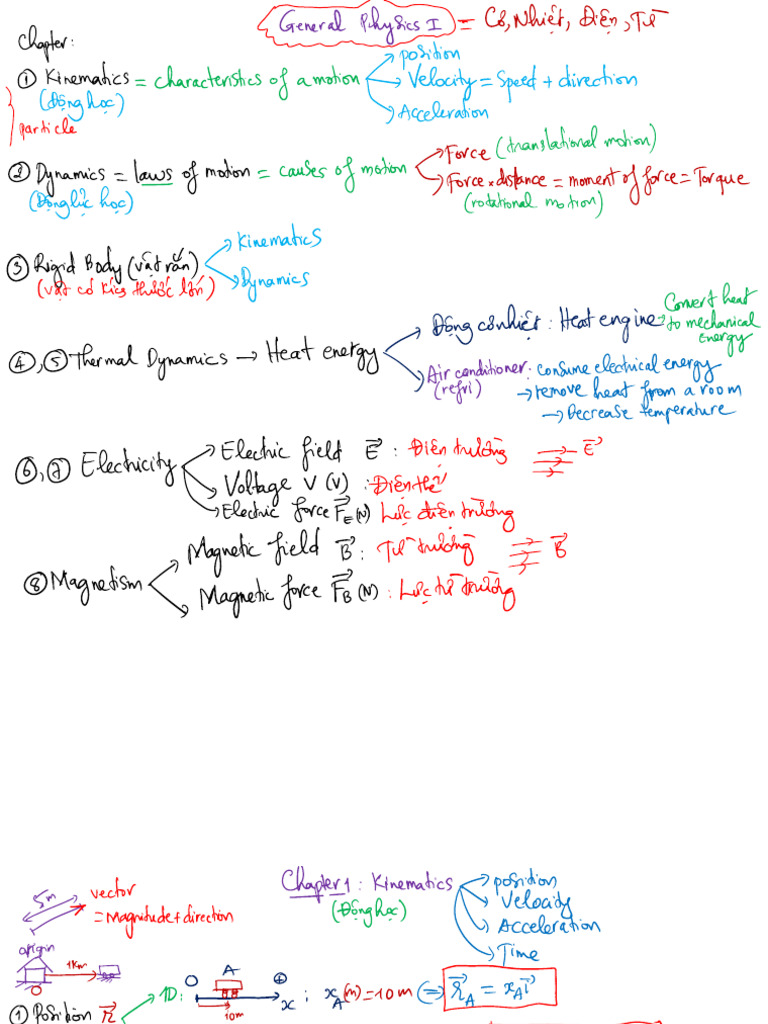 General Physics I = Cơ, Nhiệt, Điện, Từ
Chapter:
① Kinematics = characteristics of a motion
position
Velocity = Speed + direction
Acceleration
(Động học)
particle
② Dynamics = laws of motion = causes of motion
Force (translational motion)
Force × distance = moment of force = Torque
(rotational motion)
(Động lực học)
③ Rigid Body (vật rắn)
Kinematics
Dynamics
(vật có kích thước lớn)
④, ⑤ Thermal Dynamics → Heat energy
Động cơ nhiệt : Heat engine
Convert heat
to mechanical
energy
Air conditioner : consume electrical energy
(refri)
→ remove heat from a room
→ Decrease temperature
⑥, ⑦ Electricity
Electric field E⃗ : Điện trường
E⃗
Voltage V (V) : Điện thế
Electric force F⃗E (N) Lực điện trường
⑧ Magnetism
Magnetic field B⃗ : Từ trường
B⃗
Magnetic force F⃗B (N) : Lực từ trường
Chapter 1 : Kinematics
(Động học)
position
Velocity
Acceleration
Time
5m
vector
= Magnitude + direction
origin
1Km
O
① Position r⃗
1D:
O A ⊕
x
10m
; xA (m) = 10 m ⇔ r⃗A = xA i⃗